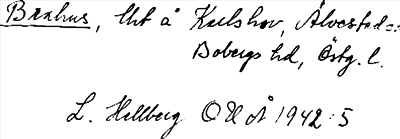 Braxhus, lht å Karlshov, Älvestad sn
Bobergs hd, Östg. l.
L. Hellberg OUÅ 1942:5